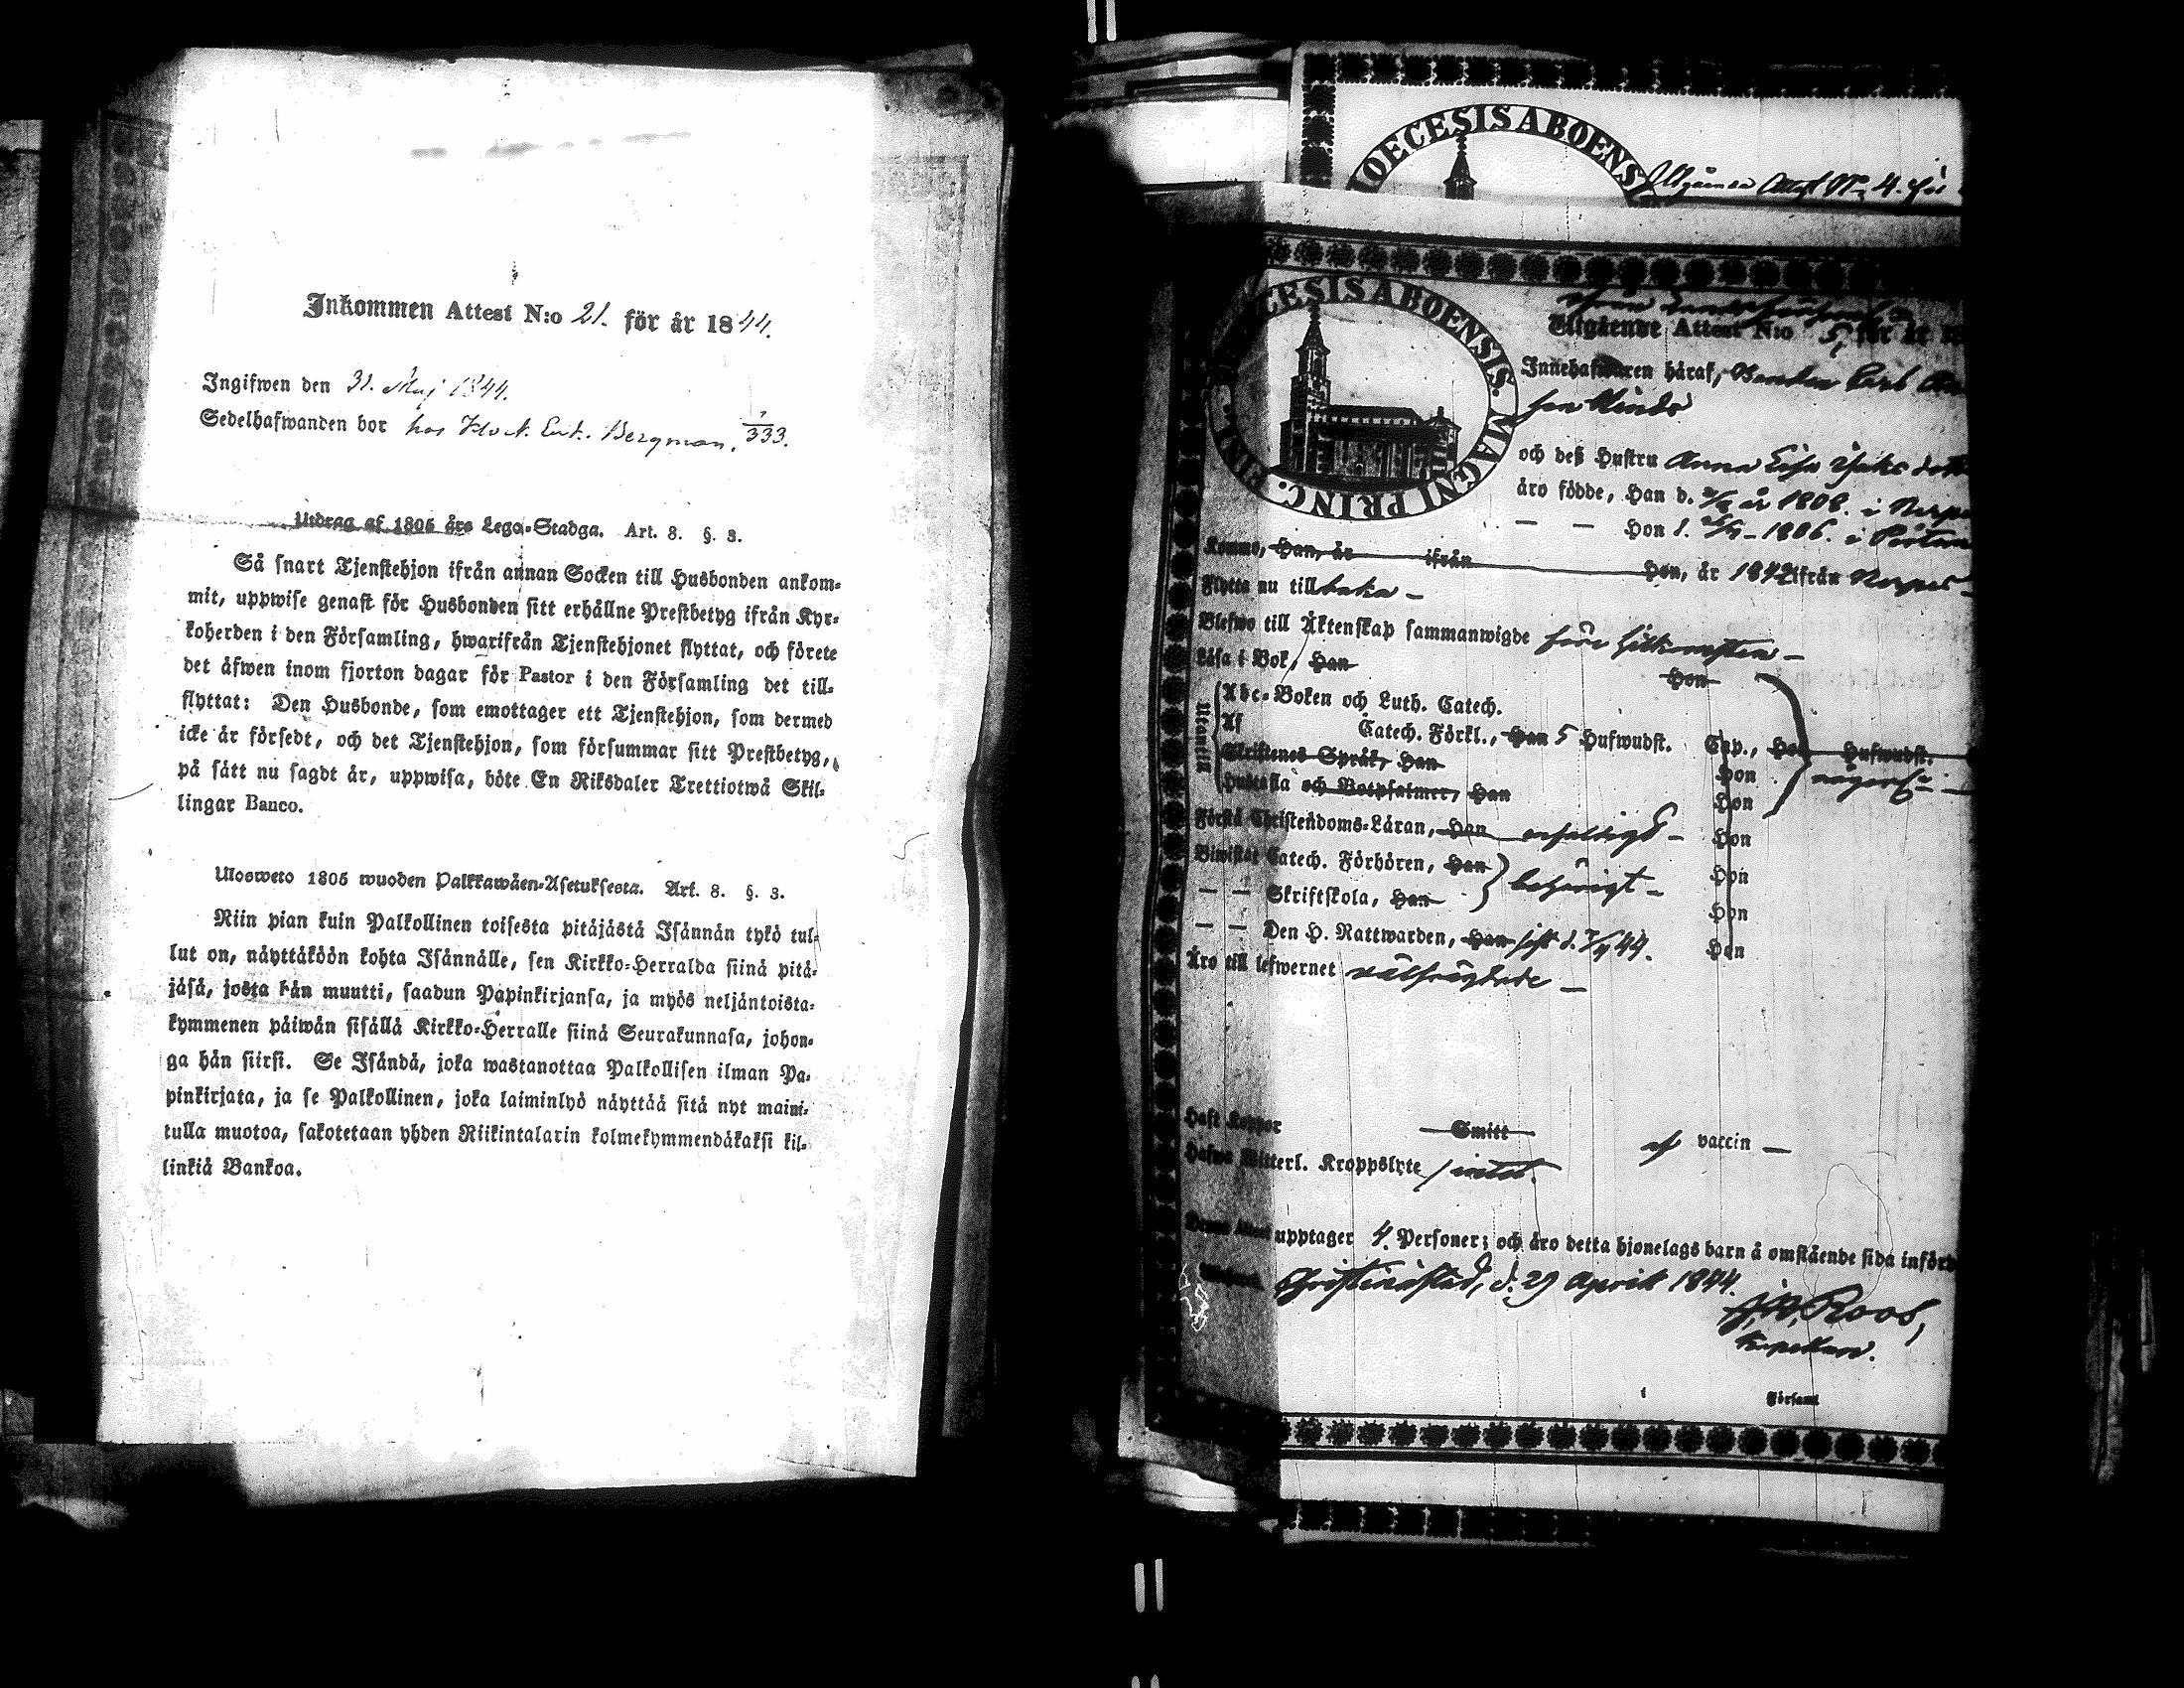 Inkommen Attest N:o 21. för år 1844.
Ingifwen den 31. Maj 1844.
Sedelhafwanden bor hos Bergman, 333.
Utdrag af 1805 års Lego-Stadga. Art. 8. §. 3.
Så snart Tjenstehjon ifrån annan Socken till Husbonden ankom-
mit, uppwise genast för Husbonden sitt erhållne Prestbetyg ifrån Kyr-
koherden i den Församling, hwarifrån Tjenstehjonet flyttat, och förete
det äfwen inom fjorton dagar för Pastor i den Församling det till-
flyttat: Den Husbonde, som emottager ett Tjenstehjon, som dermed
icke är försedt, och det Tjenstehjon, som försummar sitt Prestbetyg,
på sätt nu sagdt är, uppwisa, böte En Riksdaler Trettiotwå Skil-
lingar Banco.
Uloswето 1805 wuoden Palkkawäen-Asetuksesta. Art. 8. §. 3.
Niin pian kuin Palkollinen toisesta pitäjästä Isännän tykö tul-
lut on, näyttäköön kohta Isännälle, sen Kirkko-Herralda siinä pitä-
jäsä, josta hän muutti, saadun Papinkirjansa, ja myös neljäntoista-
kymmenen päiwän sisällä Kirkko-Herralle siinä Seurakunnasa, johon-
ga hän siirsi. Se Isändä, joka wastanottaa Palkollisen ilman Pa-
pinkirjata, ja se Palkollinen, joka laiminlyö näyttää sitä nyt maini-
tulla muotoa, sakotetaan yhden Riikintalarin kolmekymmendäkaksi kil-
linkiä Bankoa.
DIOECESIS ABOENSI
Utgående Attest N:o 4. för
CESIS ABOENSIS. MAGNI PRINC. FINL
Utgående Attest N:o 5, för år
Innehafwaren häraf, Bonden Carl
och deß Hustru Anna Lisa
äro födde, Han d. år 1808. i Nerpe
— — Hon d. 1806. i
Komms, Han, år ifrån Hon, år 1842 ifrån Nerpes —
Flytta nu till baka —
Blefwo till Äktenskap sammanwigde före hitkomsten —
Läsa i Bok, Han Hon
Utantill
Abc-Boken och Luth. Catech.
Af Catech. Förkl., Han 5 Hufwudst. Cap., Hon Hufwudst.
Skriftenes Språk, Han Hon
Hustafla och Botpsalmer, Han Hon
Förstå Christendoms-Läran, Han enfaldigt — Hon
Biwistat Catech. Förhören, Han Hon
— — Skriftskola, Han behörigt — Hon
— — Den H. Nattwarden, Han sist d. 44. Hon
Äro till lefwernet välfrägdade —
Haft Koppor Smitt af vaccin —
Hafwa Witterl. Kroppslyte intet.
Denna Attest upptager 4. Personer; och äro detta hjonelags barn å omstående sida införd
Christinestad, d. 29 April 1844.
Roos,
Kapellan.
i Församl